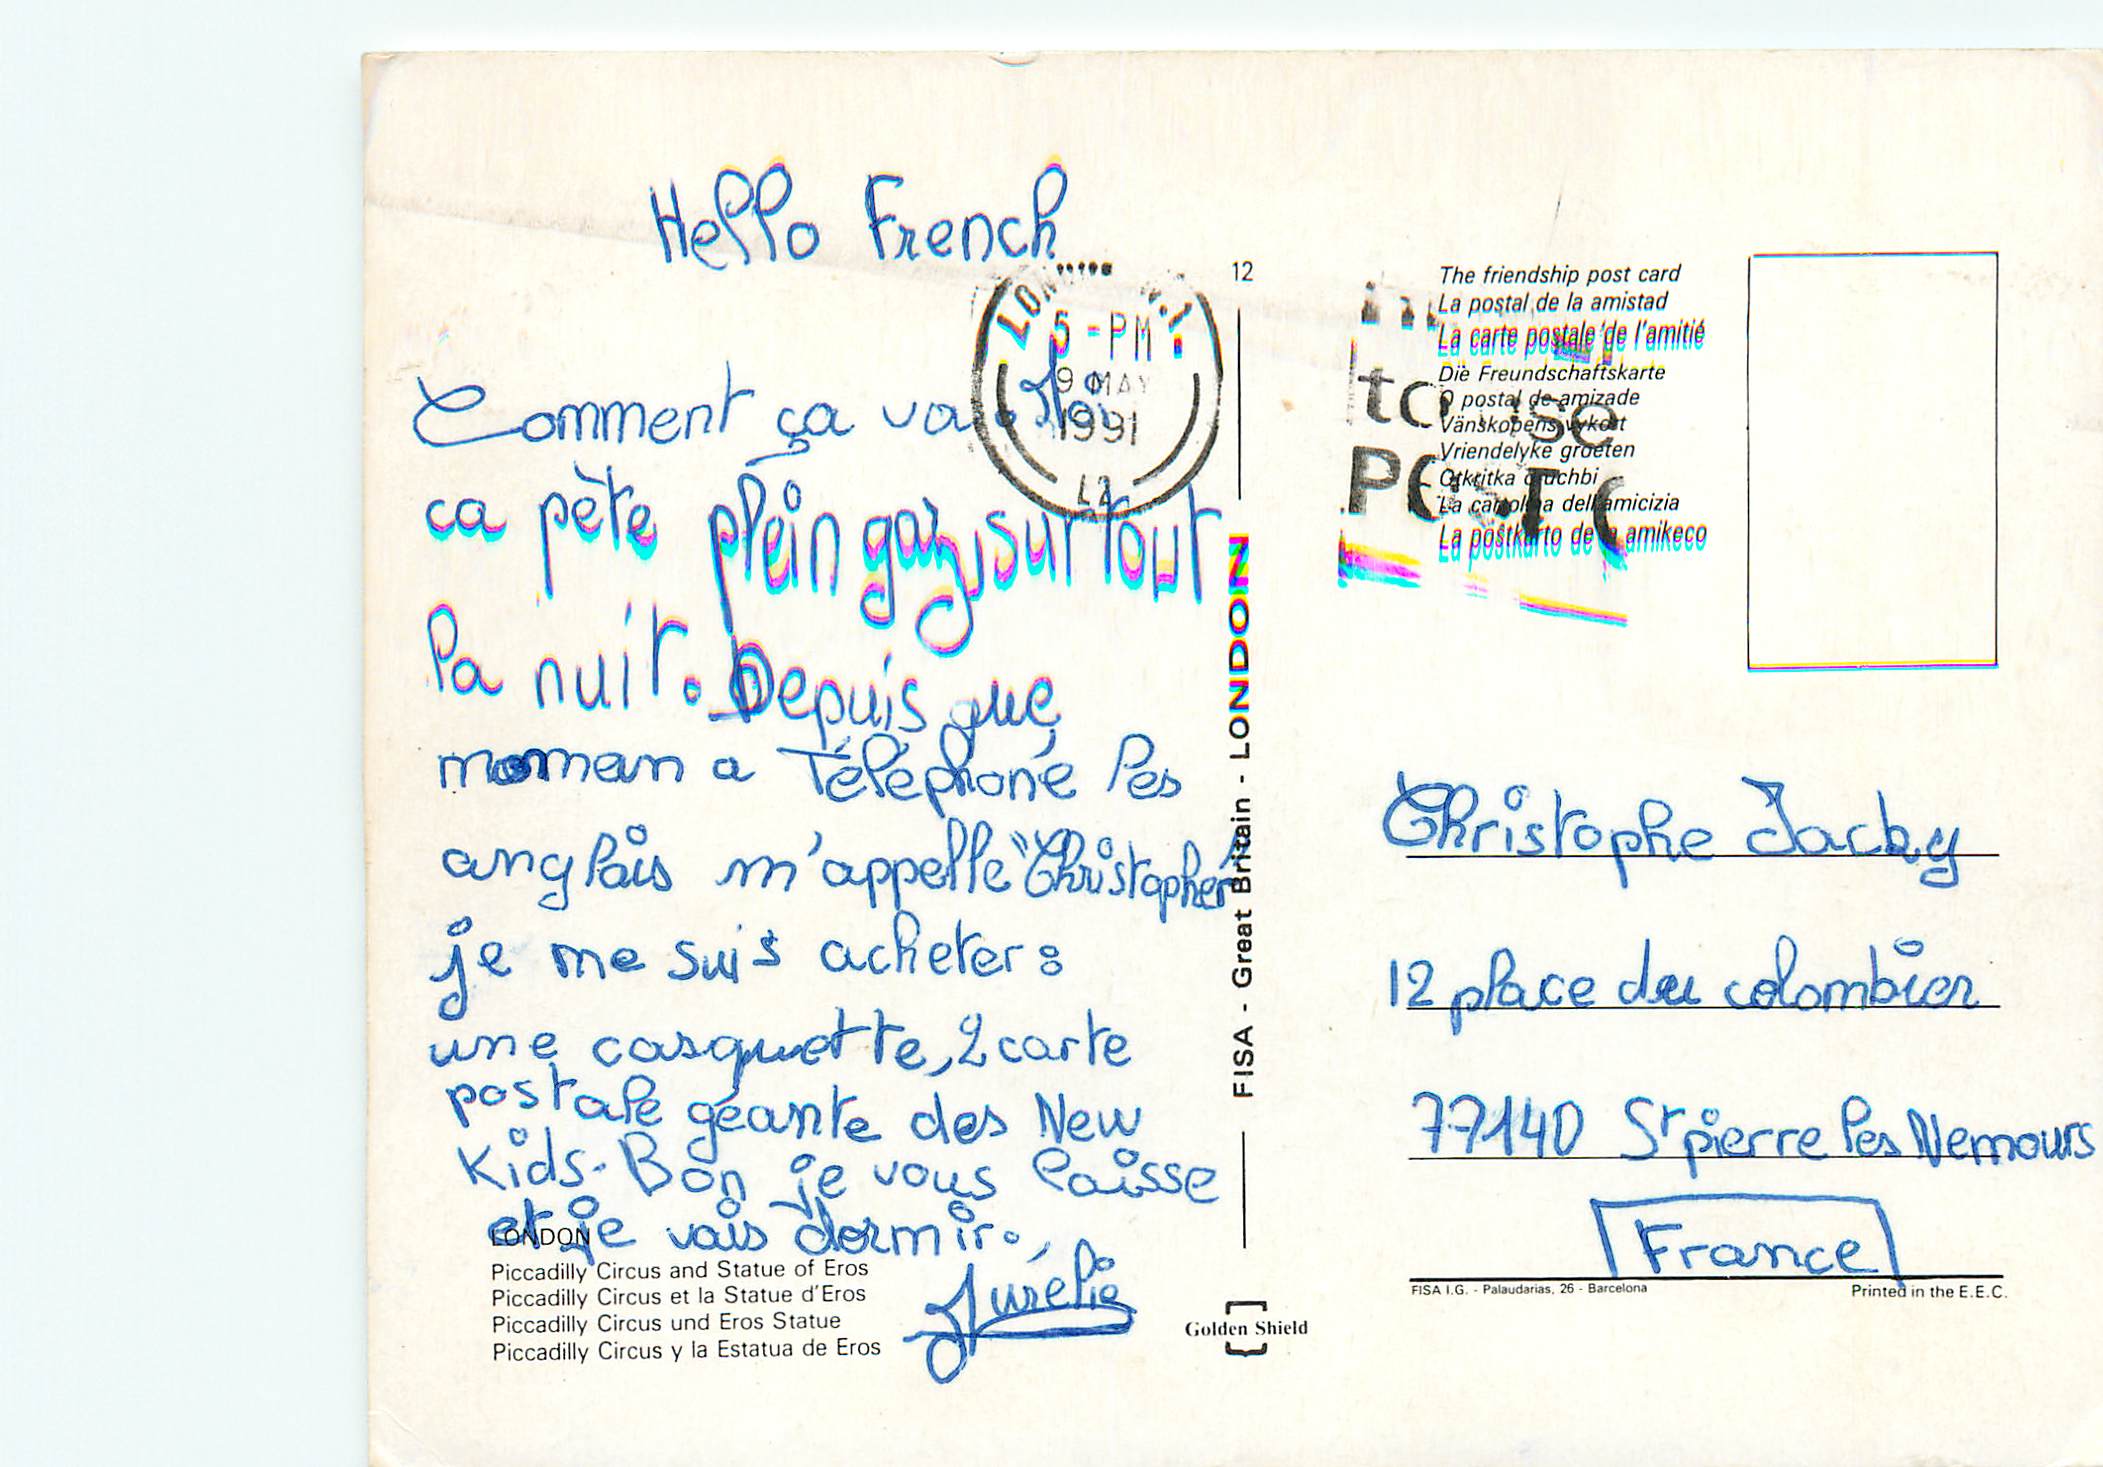 Hello French
Comment ça va
ca pète plein gaz, surtout
la nuit. Depuis que
maman a téléphoné les
anglais m'appelle "Christopher"
je me suis acheter :
une casquette, 2 carte
postale géante des New
Kids. Bon je vous laisse
et je vais dormir.
Aurélie
LONDON
Piccadilly Circus and Statue of Eros
Piccadilly Circus et la Statue d'Eros
Piccadilly Circus und Eros Statue
Piccadilly Circus y la Estatua de Eros
5 - PM
9 MAY
1991
12
FISA - Great Britain - LONDON
Golden Shield
The friendship post card
La postal de la amistad
La carte postale de l'amitié
Die Freundschaftskarte
O postal de amizade
Vänskopens vykort
Vriendelyke groeten
Otkritka druchbi
La cartolina dell'amicizia
La postkarto de la amikeco
Christophe Jacky
12 place du colombier
77140 St pierre les Nemours
France
FISA I.G. - Palaudarias, 26 - Barcelona
Printed in the E.E.C.